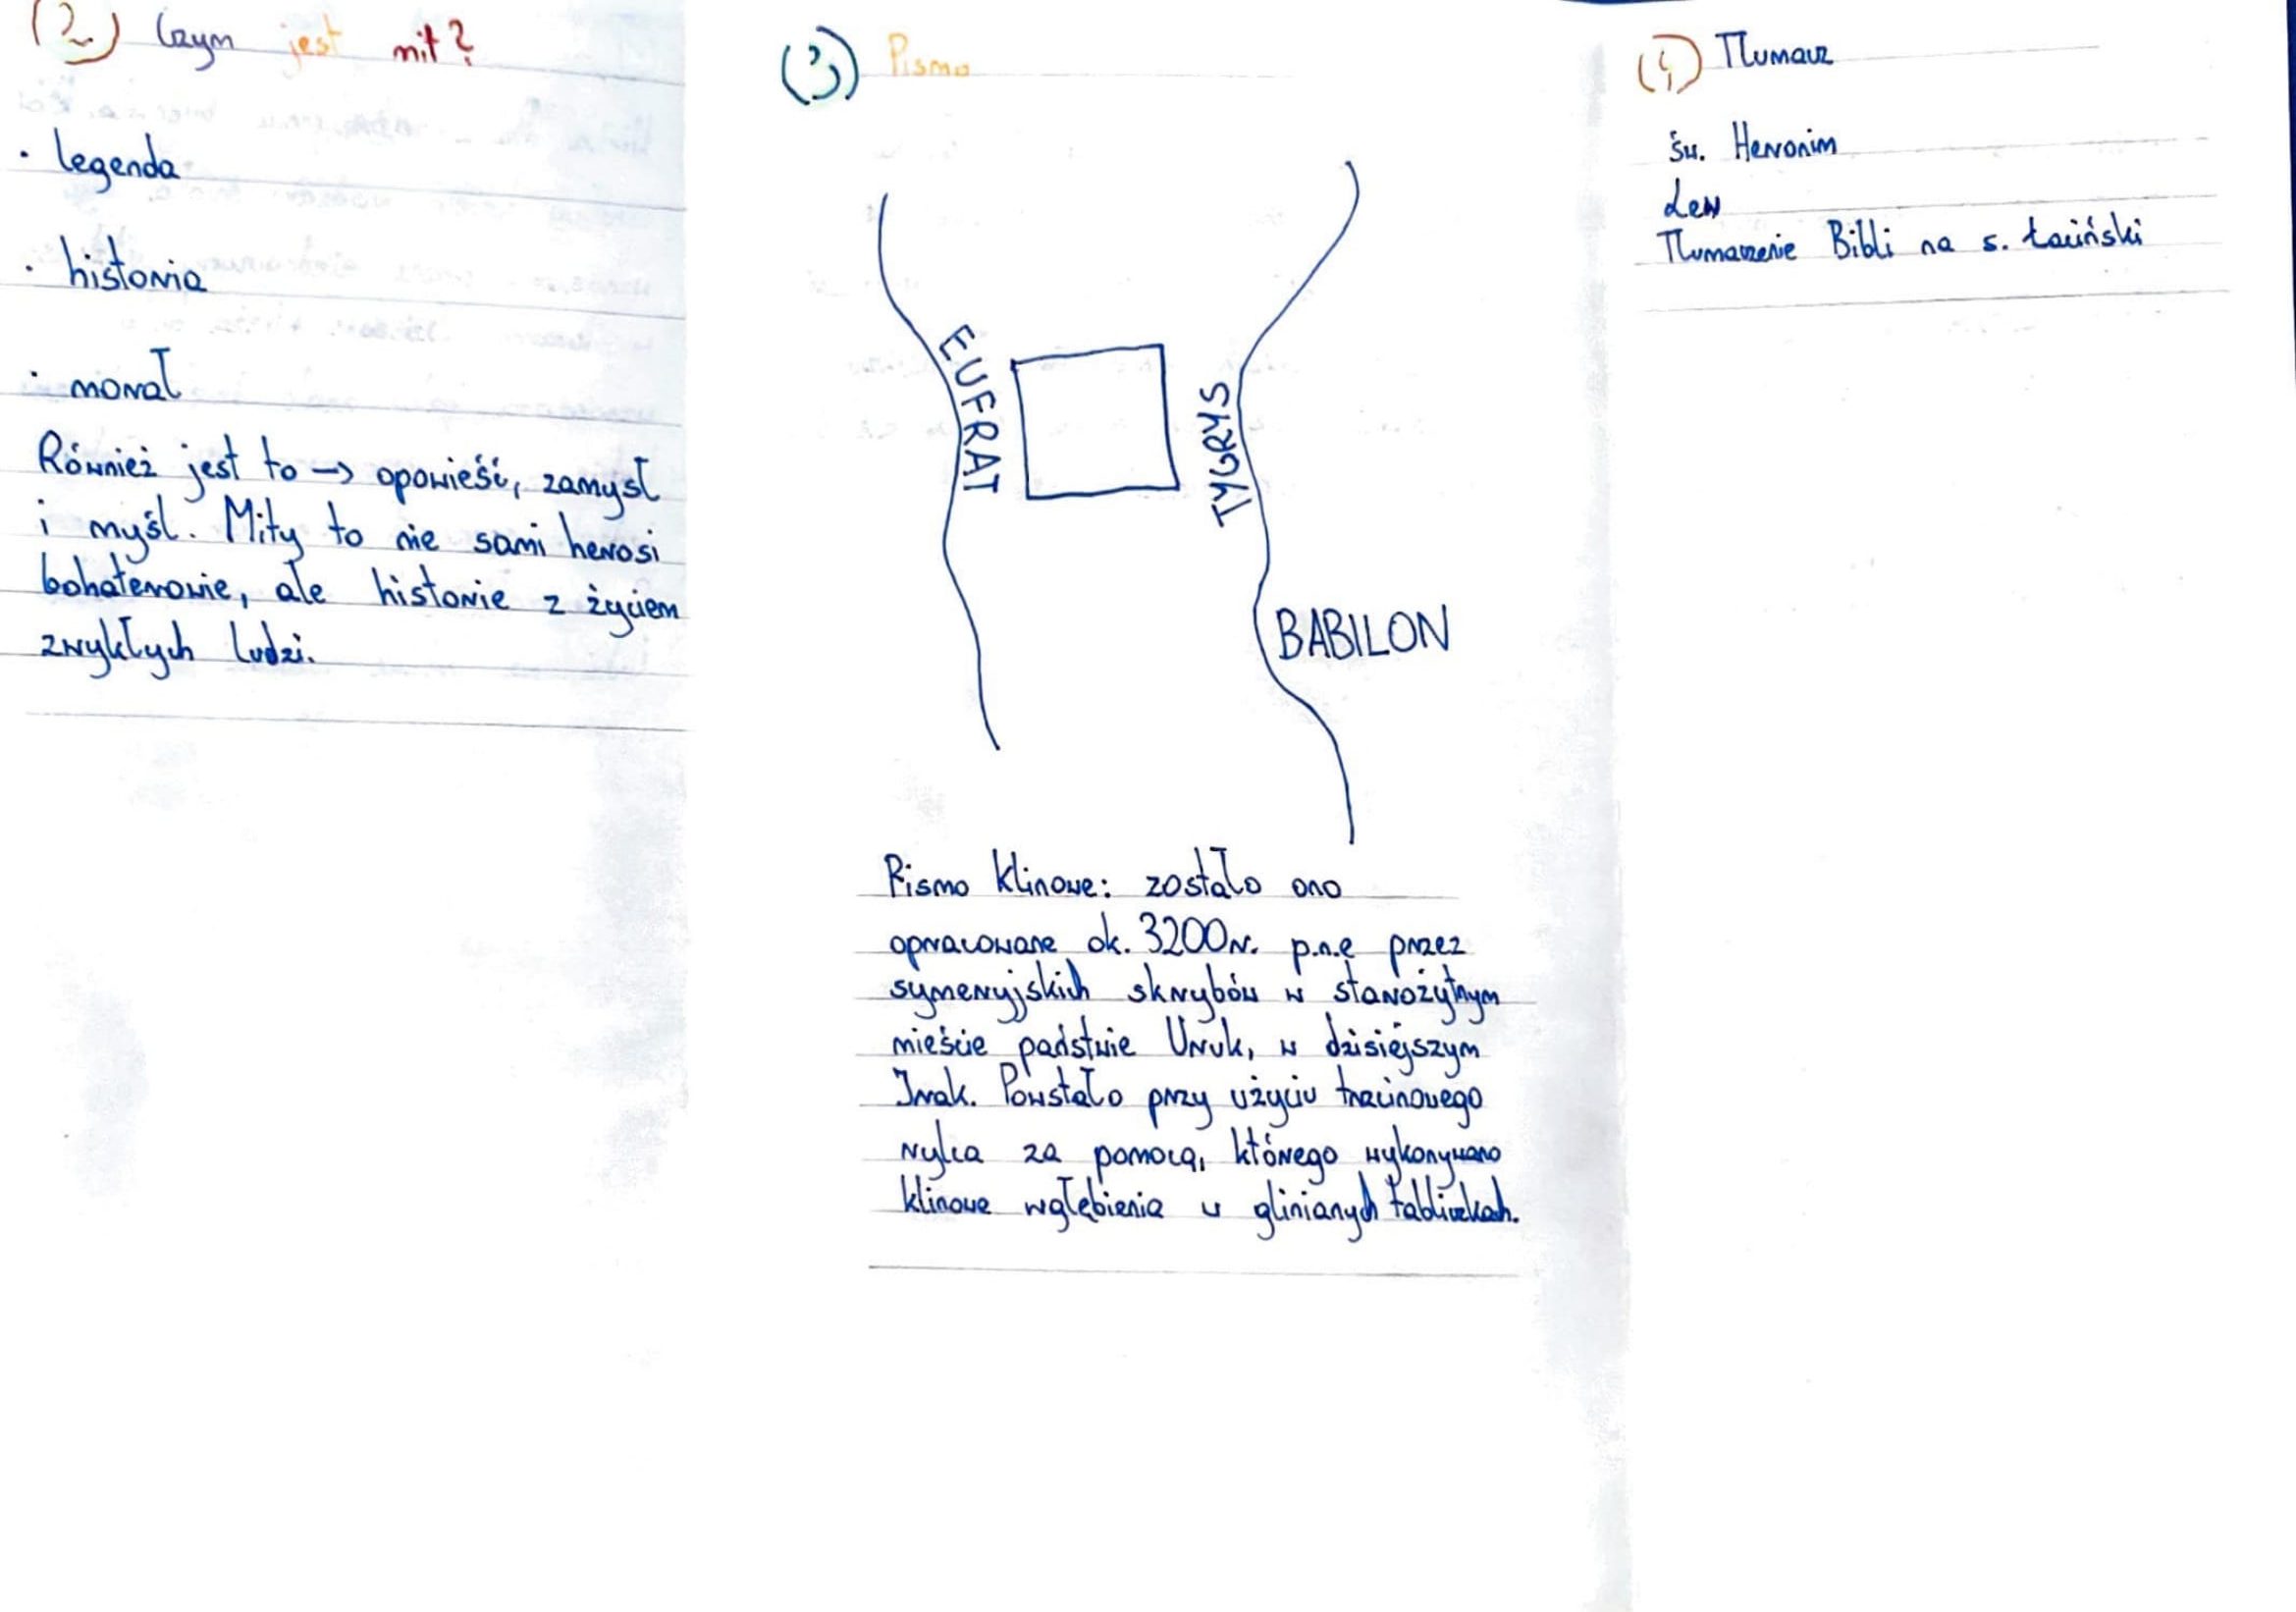 (2) Czym jest mit?
• legenda
• historia
• morał
Również jest to → opowieść, zamysł
i myśl. Mity to nie sami herosi
bohaterowie, ale historie z życiem
zwykłych ludzi.
(3) Pismo
EUFRAT
TYGRYS
BABILON
Pismo klinowe: zostało ono
opracowane ok. 3200r. p.n.e przez
symeryjskich skrybów w starożytnym
mieście państwie Uruk, w dzisiejszym
Irak. Powstało przy użyciu trzcinowego
rylca za pomocą, którego wykonywano
klinowe wgłębienia w glinianych tabliczkach.
(4) Tłumacz
św. Heronim
Lew
Tłumaczenie Bibli na s. łaciński